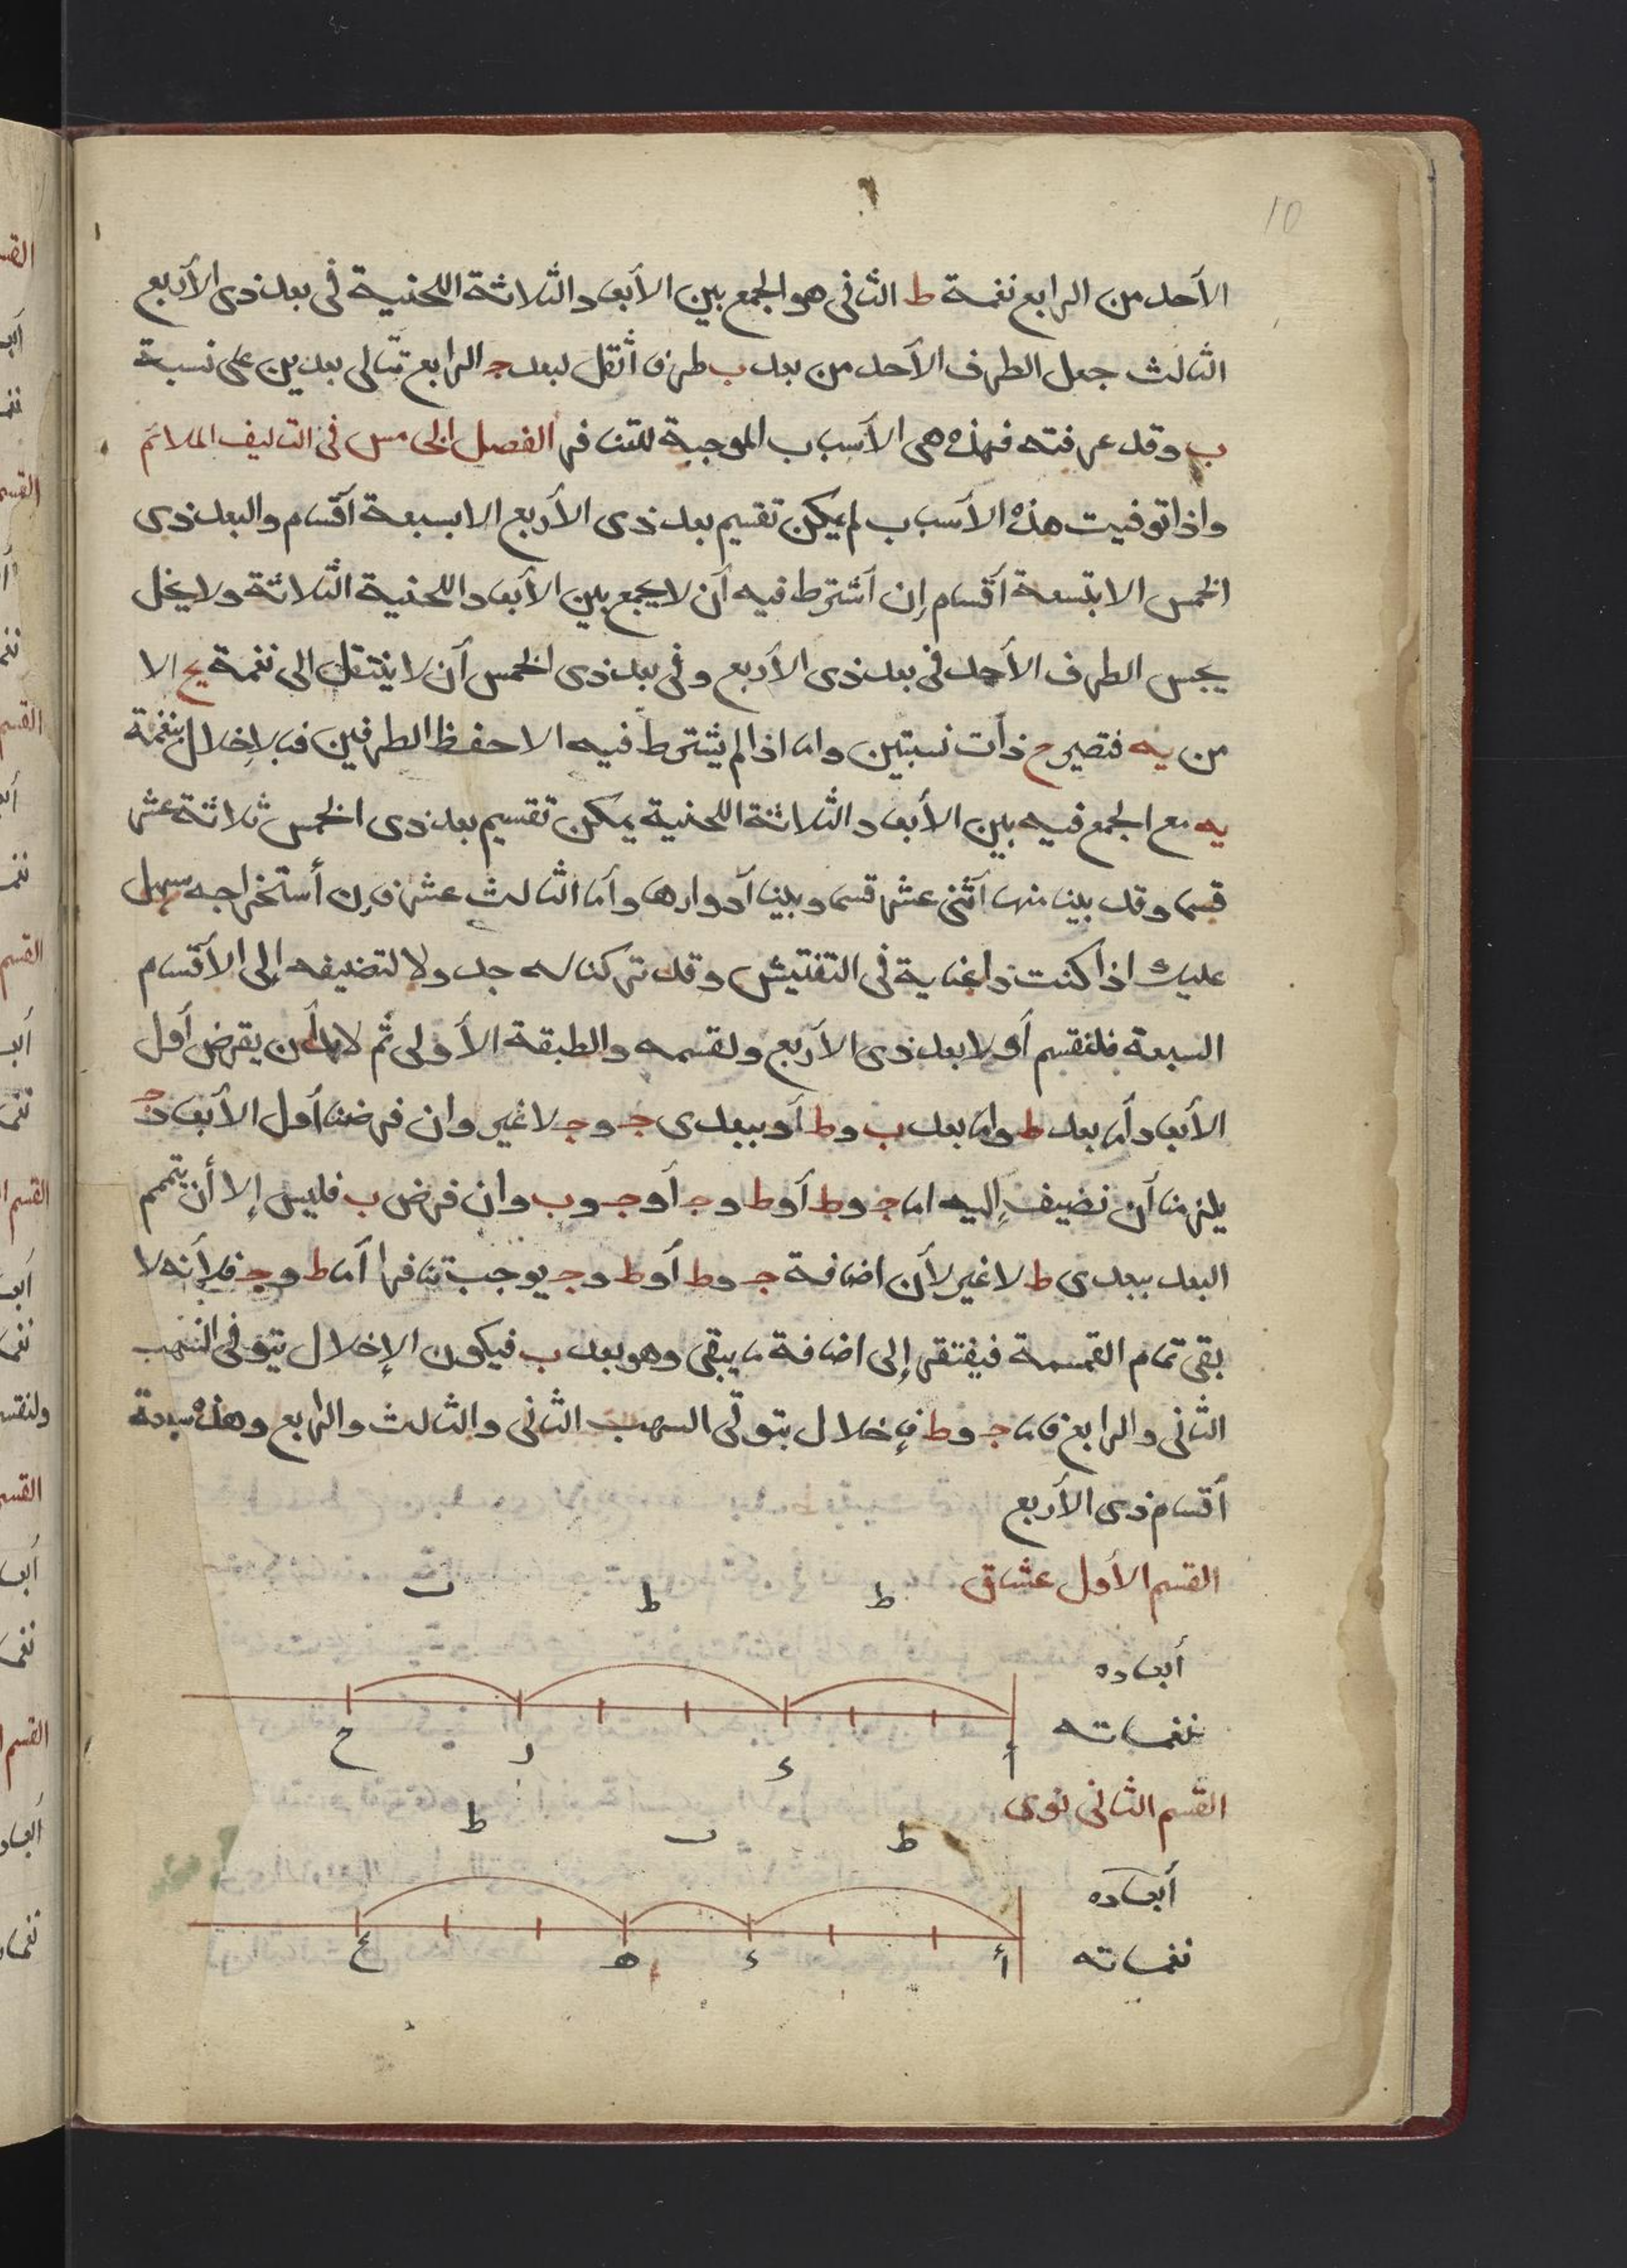 10
الأحد من الرابع نغمة ط الثانى هو الجمع بين الأبعاد الثلاثة اللحنية فى بعد ذى الأربع
الثالث جعل الطرف الأحد من بعد ب طرف أثقل لبعد ج الرابع تتالى بعدين على نسبة
ب وقد عرفته فهذه هى الأسباب الموجبة للتنافر الفصل الخامس فى التاليف الملائم
واذا توفيت هذه الأسباب لم يمكن تقسيم بعد ذى الأربع الا بسبعة أقسام والبعد ذى
الخمس الا بتسعة أقسام إن أشترط فيه أن لا يجمع بين الأبعاد اللحنية الثلاثة ولا يخل
بجس الطرف الأحد فى بعد ذى الأربع وفى بعد ذى الخمس أن لا ينتقل الى نغمة يح الا
من يه فتصير ح ذات نسبتين واما اذا لم يشترط فيه الا حفظ الطرفين فبالإخلال بنغمة
يه مع الجمع فيه بين الأبعاد الثلاثة اللحنية يمكن تقسيم بعد ذى الخمس ثلاثة عشر
قسما وقد بينا منها أثنى عشر قسما وبينا أدوارها وأما الثالث عشر فإن أستخراجه سهل
عليك اذا كنت ذا عناية فى التفتيش وقد تركنا له جدولا لتضيفه إلى الأقسام
السبعة فلنقسم أولا بعد ذى الأربع ولقسمه والطبقة الأولى ثم لا بد أن يفرض أول
الأبعاد أما بعد ط واما بعد ب وط أو ببعدى ج وج لا غير وان فرضنا أول الأبعاد ج
يلزمنا أن نضيف إليه اما ج وط أو ط وج أو ج وب وان فرض ب فليس إلا أن يتمم
البعد ببعدى ط لا غير لأن اضافة ج وط أو ط وج يوجب تنافرا أما ط وج فلأنه لا
بقى تمام القسمة فيفتقر إلى اضافة ما يبقى وهو بعد ب فيكون الإخلال بتوفى السبب
الثانى والرابع فاما ج وط فإخلال بتوقى السبب الثانى والثالث والرابع وهذه سبعة
أقسام ذى الأربع
القسم الأول عشاق
ط ط ب
أبعاده
نغماته
أ د ز ح
القسم الثانى نوى
ط ب ط
أبعاده
نغماته
أ د ه ح